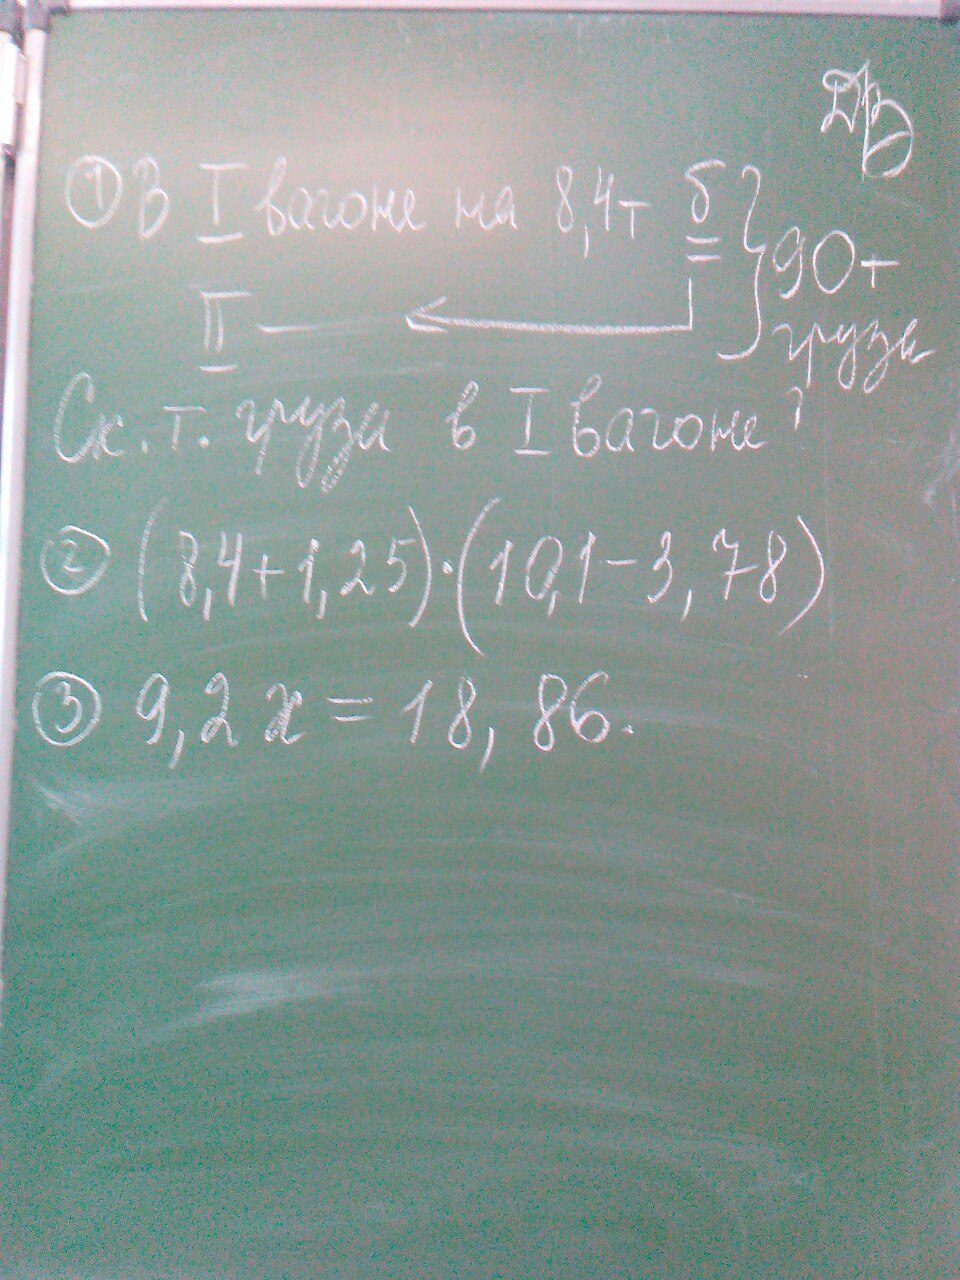 Д/З
① В I вагоне на 8,4т б } 90т
II — ← груза
Ск. т. груза в I вагоне?
② (8,4+1,25)·(10,1-3,78)
③ 9,2x=18,86.